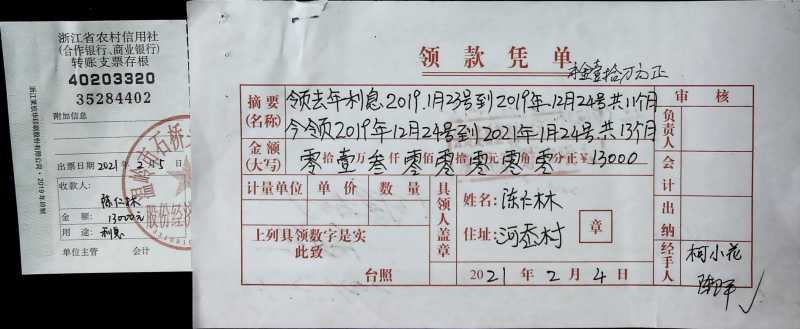 浙江省农村信用社
(合作银行、商业银行)
转账支票存根
40203320
35284402
附加信息
出票日期 2021年 2 5
收款人:
陈仁林
金 额: 13000元
用 途: 利息
单位主管 会计
领款凭单
本金壹拾万元正
摘要(名称)
领去年利息2019.1月23号到2019年.12月24号共11个月
今领2019年12月24号到2021年1月24号.共13个月
金额(大写)
零拾壹万叁仟零佰零拾零元零角零分正¥13000
计量单位 单价 数量
上列具领数字是实
此致
台照
具领人盖章
姓名:陈仁林
住址:河岙村
章
2021年2月4日
审核
负责人
会计
出纳
经手人
柯小花